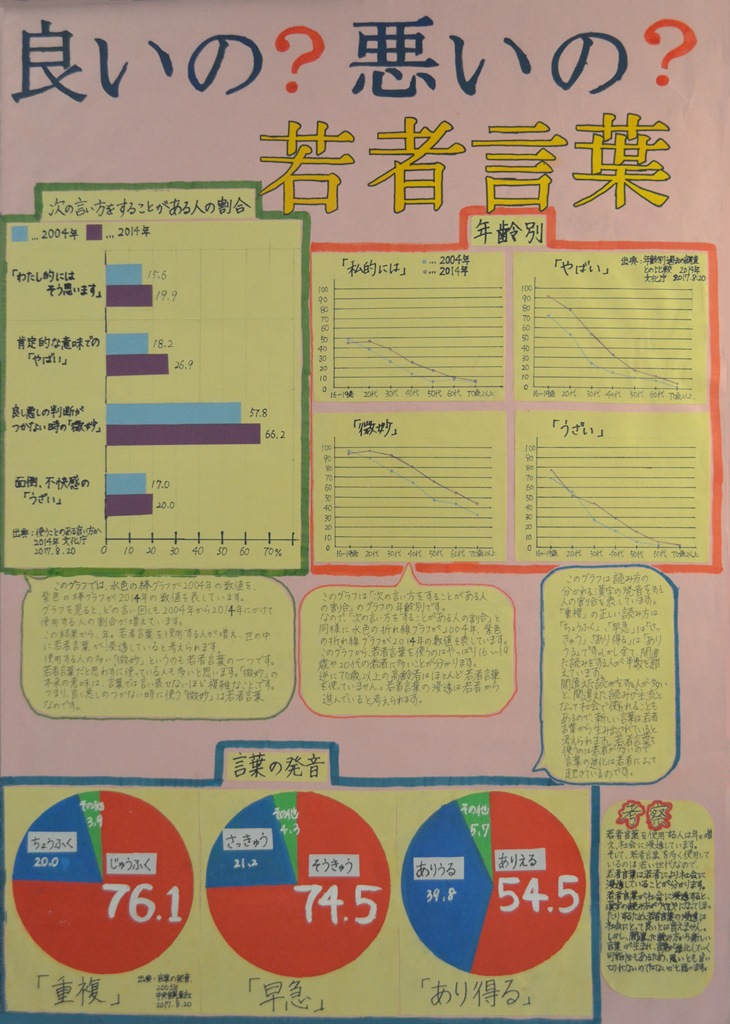 良いの?悪いの?
若者言葉
次の言い方をすることがある人の割合
…2004年 …2014年
「わたし的には
そう思います」
15.6
19.9
肯定的な意味での
「やばい」
18.2
26.9
良し悪しの判断が
つかない時の「微妙」
57.8
66.2
面倒、不快感の
「うざい」
17.0
20.0
0 10 20 30 40 50 60 70%
出典:使うことのある言い方か
2014年 文化庁
2017.8.20
年齢別
「私的には」
…2004年
…2014年
100
90
80
70
60
50
40
30
20
10
0
16~19歳 20代 30代 40代 50代 60代 70歳以上
「やばい」
出典:年齢別過去の調査
との比較 2014年
文化庁 2017.8.20
100
90
80
70
60
50
40
30
20
10
0
16~19歳 20代 30代 40代 50代 60代 70歳以上
「微妙」
100
90
80
70
60
50
40
30
20
10
0
16~19歳 20代 30代 40代 50代 60代 70歳以上
「うざい」
100
90
80
70
60
50
40
30
20
10
0
16~19歳 20代 30代 40代 50代 60代 70歳以上
このグラフでは、水色の棒グラフが2004年の数値を、
紫色の棒グラフが2014年の数値を表しています。
グラフを見ると、どの言い回しも2004年から2014年にかけて
使用する人の割合が増えています。
この結果から、年々若者言葉を使用する人が増え、世の中
に若者言葉が浸透していると考えられます。
使用する人の多い「微妙」というのも若者言葉の一つです。
若者言葉だと思わずに使っている人も多いと思います。「微妙」の
本来の意味は、言葉では言い表せないほど複雑なことです。
つまり、良し悪しのつかない時に使う「微妙」は若者言葉
なのです。
このグラフは「次の言い方をすることがある人
の割合」のグラフの年齢別です。
なので、「次の言い方をすることがある人の割合」と
同様に水色の折れ線グラフが2004年、紫色
の折れ線グラフが2014年の数値を表しています。
このグラフから、若者言葉を使うのはやっぱり16~19
歳や20代の若者に多いことが分かります。
逆に70歳以上の高齢者はほとんど若者言葉
を使っていません。若者言葉の浸透は若者から
進んでいると考えられます。
このグラフは読み方の
分かれる漢字の発音をする
人の割合を表しています。
「重複」の正しい読み方は
「ちょうふく」、「早急」は「さっ
きゅう」、「あり得る」は「あり
うる」です。しかし全て、間違
った読みをする人が半数を超え
ています。
言葉の発音
その他
3.9
ちょうふく
20.0
じゅうふく
76.1
「重複」
出典:言葉の発音
2017.8.20
その他
4.3
さっきゅう
21.2
そうきゅう
74.5
「早急」
その他
5.7
ありうる
39.8
ありえる
54.5
「あり得る」
考察
若者言葉を使用する人は年々増
え、社会に浸透しています。
そして、若者言葉を多く使用して
いるのは若い世代なので、
若者言葉は若者により社会に
浸透していることが分かります。